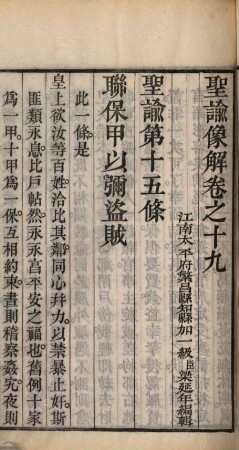 聖諭像解卷之十九
江南太平府繁昌縣知縣加一級臣梁延年編輯
聖諭第十五條
聯保甲以彌盜賊
此一條是
皇上欲汝等百姓洽比其鄰同心幷力以禁暴止奸斯
匪類永息比戶帖然永永昌平安之福也舊例十家
爲一甲十甲爲一保互相約束晝則稽察姦宄夜則